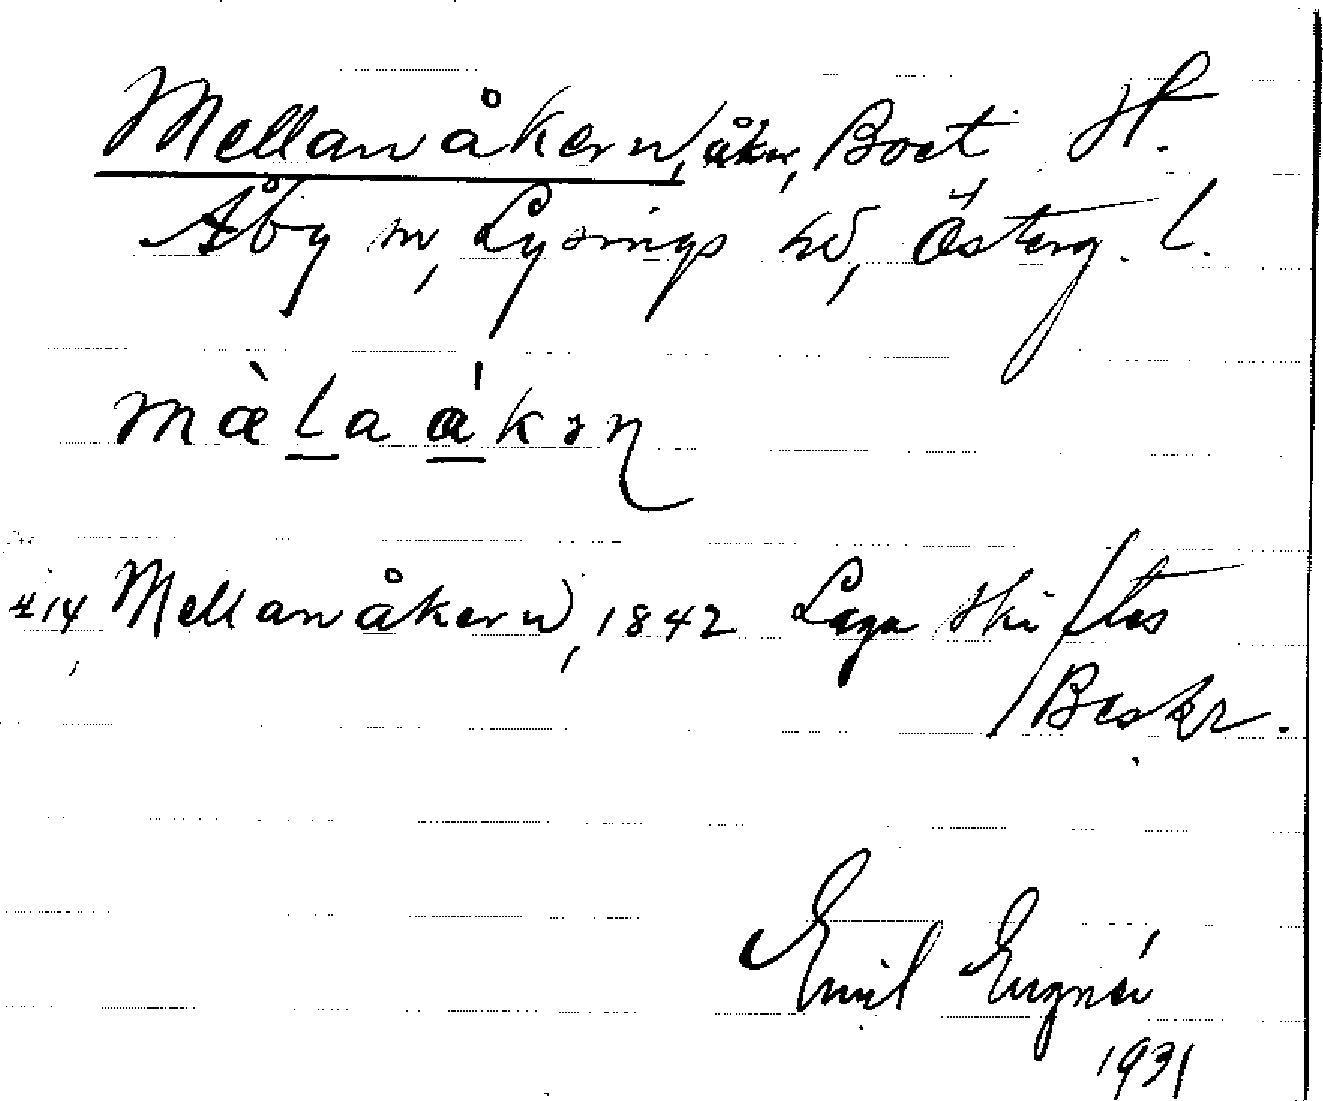 Mellanåkern, åker, Boet St.
Åby sn, Lysings hd, Österg. l.
mæ̀l̲aá̲kən
#14 Mellanåkern, 1842 Laga Skiftes
Beskr.
Emil
1931